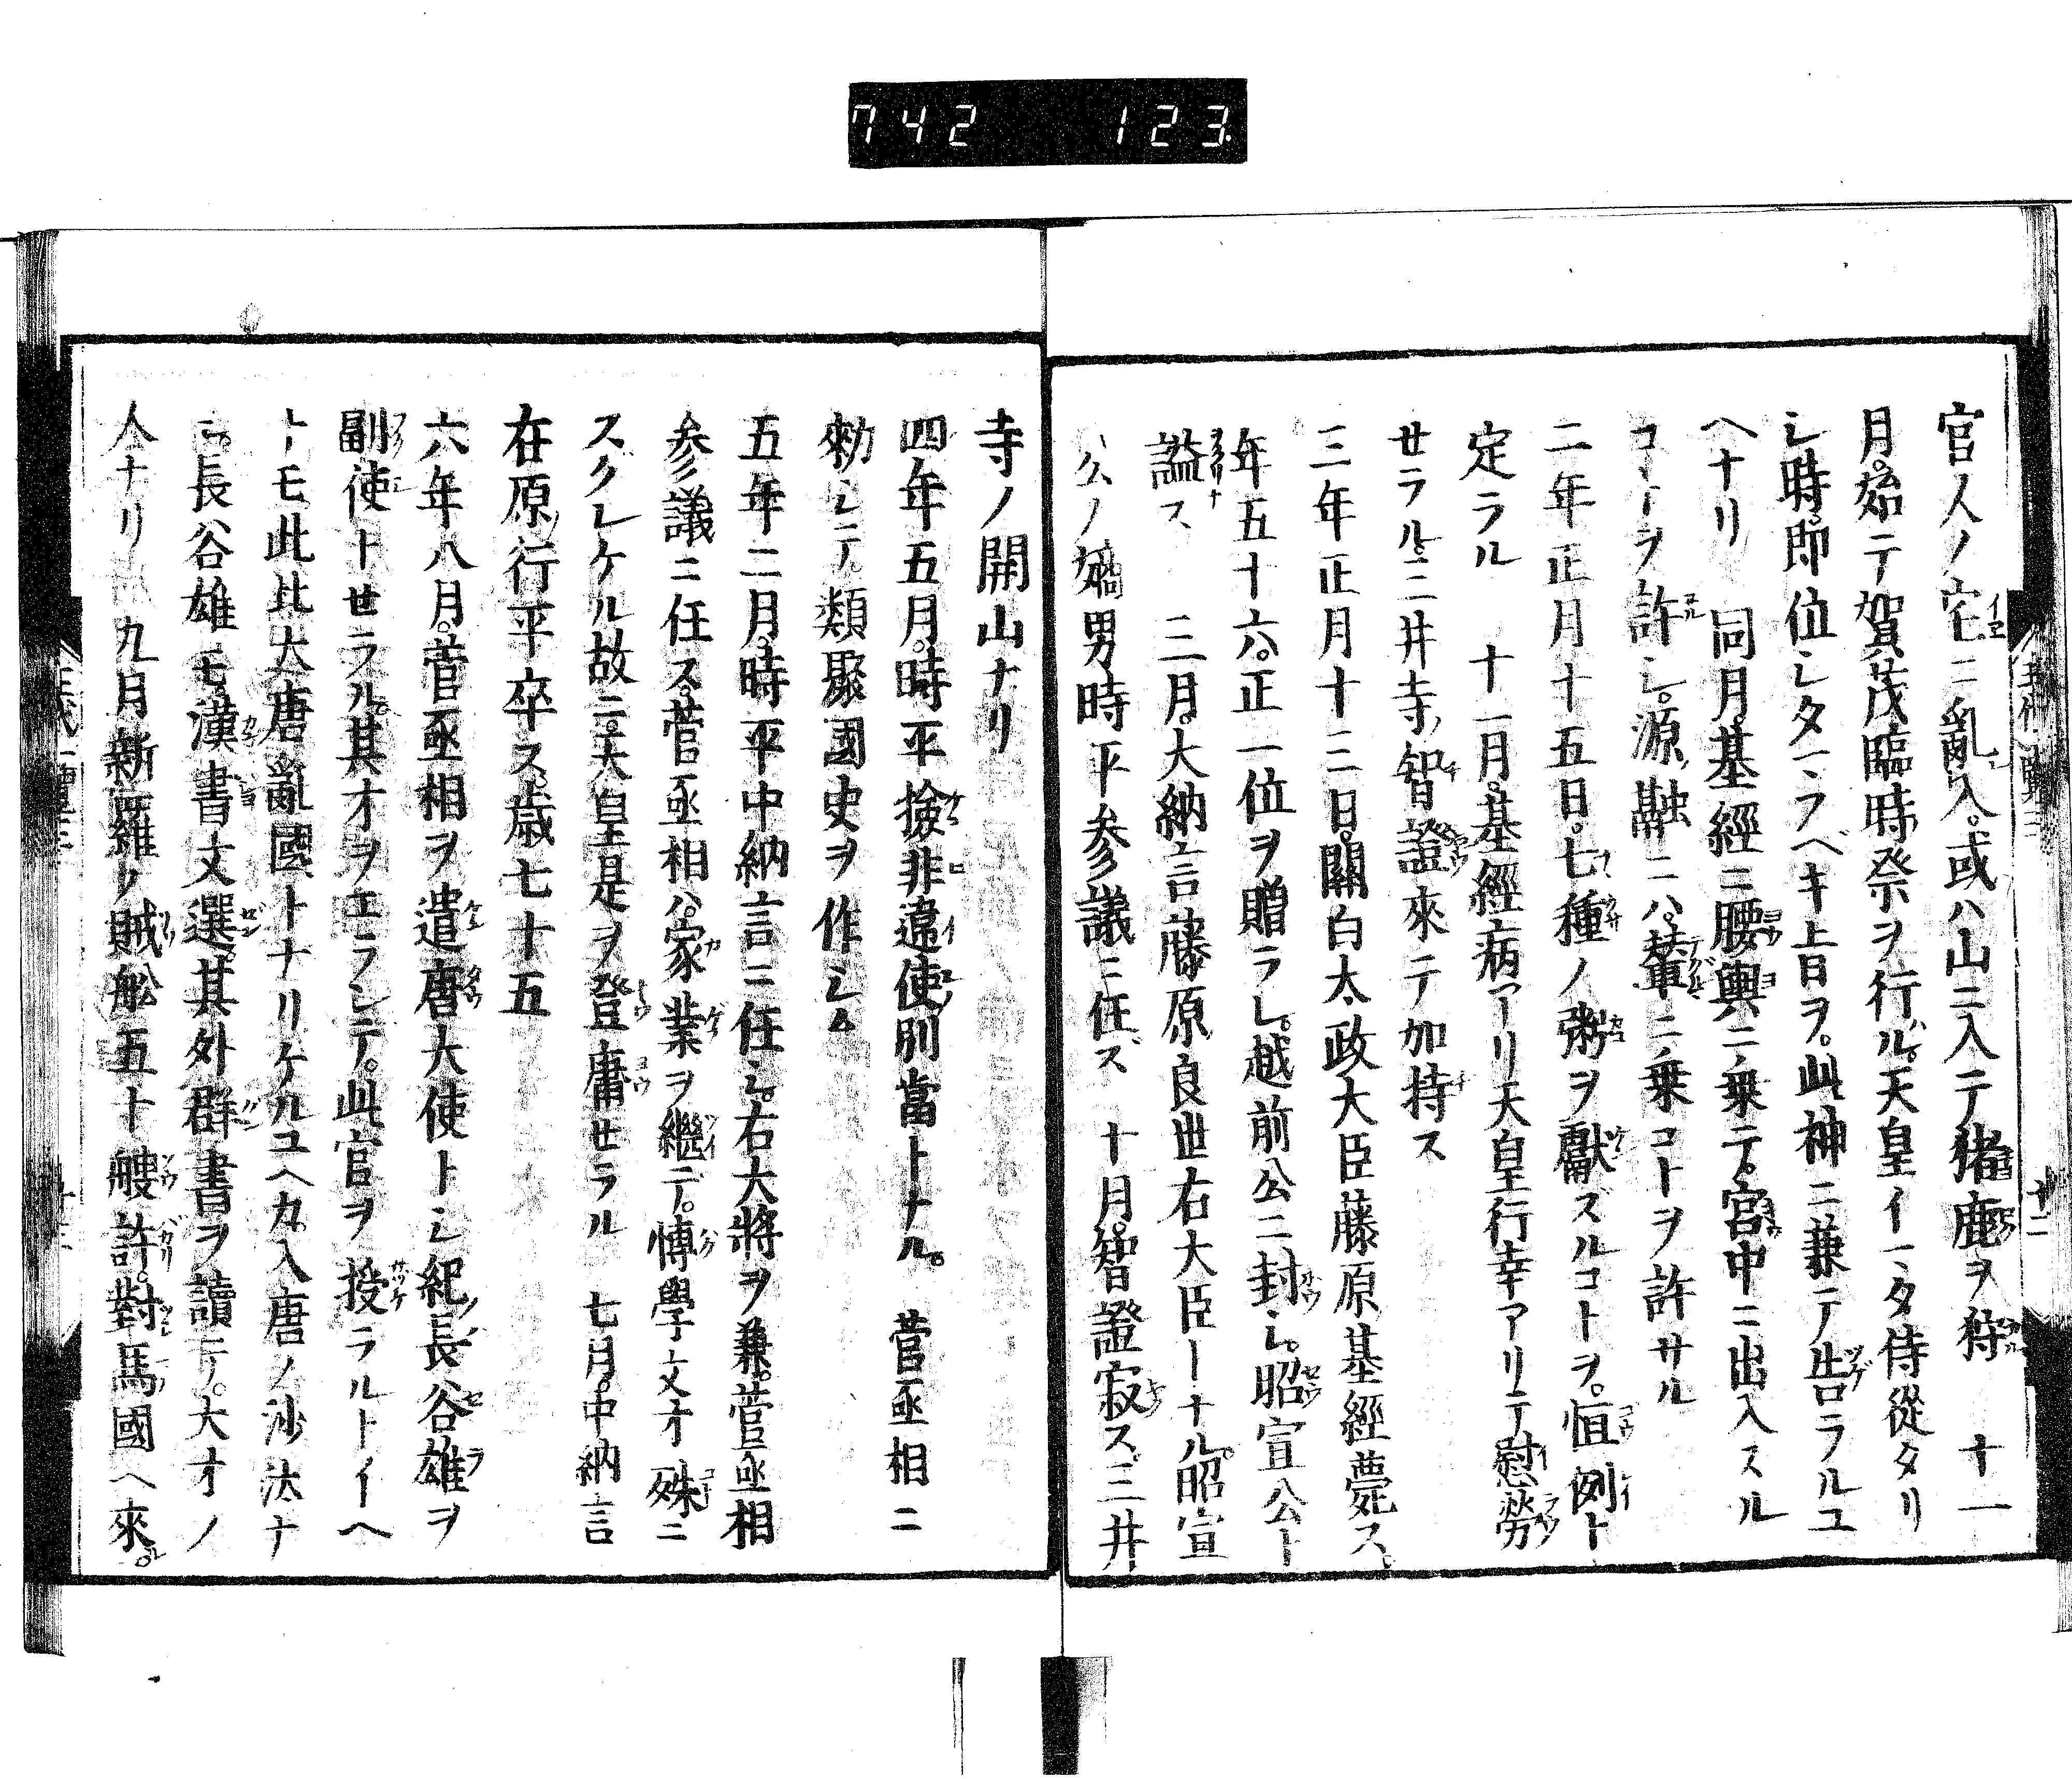 742 123
官人ノ宅ニ亂入。或ハ山ニ入テ猪鹿ヲ狩 十一
月。始テ賀茂臨時祭ヲ行ル。天皇イマタ侍從タリ
シ時。即位シタマフベキ旨ヲ。此神ニ兼テ告ラルユ
ヘナリ 同月。基經ニ腰輿ニ乗テ。宮中ニ出入スル
コトヲ許シ。源融ニハ。輦ニ乗コトヲ許サル
二年正月十五日。七種ノ粥ヲ獻ズルコトヲ。恒例ト
定ラル 十一月。基經病アリ天皇行幸アリテ慰勞
セラル。三井寺ノ智證來テ加持ス
三年正月十三日。關白太政大臣藤原基經薨ス。
年五十六。正一位ヲ贈ラレ。越前公ニ封シ。昭宣公ト
謚ス 三月。大納言藤原良世右大臣トナル。昭宣
公ノ嫡男時平参議ニ任ズ 十月。智證寂ス。三井
寺ノ開山ナリ
四年五月。時平撿非違使別當トナル。 菅亟相ニ
勅シテ。類聚國史ヲ作シム
五年二月。時平中納言ニ任シ。右大將ヲ兼。菅亟相
参議ニ任ス。菅亟相ハ。家業ヲ繼デ。博學文才殊ニ
スグレケル故ニ。天皇是ヲ登庸セラル 七月。中納言
在原ノ行平卒ス。歳七十五
六年八月。菅亟相ヲ遣唐大使トシ紀長谷雄ヲ
副使トセラル。其才ヲエランテ。此官ヲ授ラルトイヘ
トモ。此比大唐亂國トナリケルユヘカ。入唐ノ沙汰ナ
シ。長谷雄モ。漢書文選。其外群書ヲ讀テ。大才ノ
人ナリ 九月新羅ノ賊舩五十艘許。對馬國ヘ來。